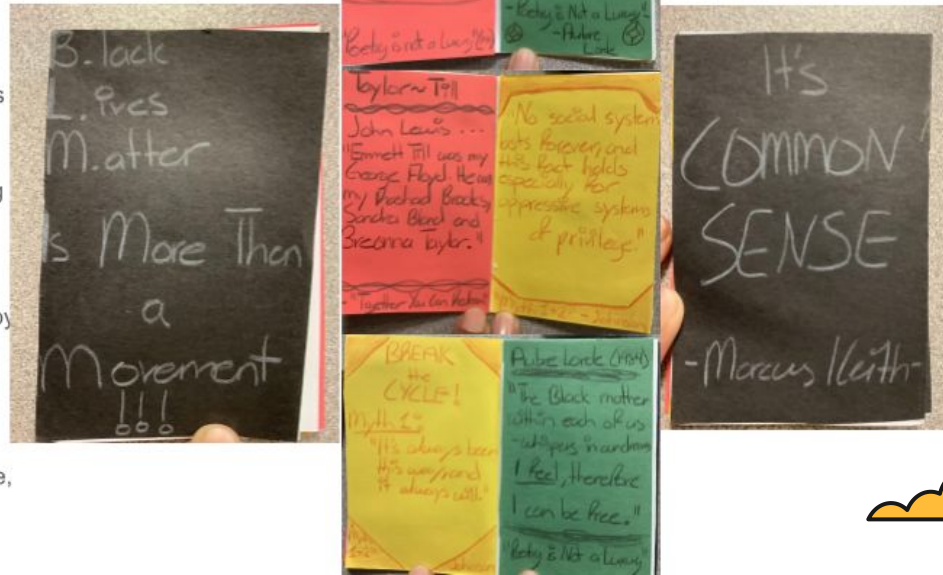 B.lack
L.ives
M.atter
Is More Than
a
Movement
!!!
"Poetry is not a Luxury"
-"Poetry is Not a Luxury"-
-Audre
Lorde
Taylor~Till
John Lewis...
"Emmett Till was my
George Floyd. He was
my Rashad Brooks,
Sandra Bland and
Breonna Taylor."
-"Together You Can Redeem"
"No social system
lasts forever, and
this fact holds
especially for
oppressive systems
of privilege."
"Myth 1+2" - Johnson
BREAK
the
CYCLE!
Myth 1:
"It's always been
this way, and
it always will"
Johnson
Audre Lorde (1984)
"The Black mother
within each of us
-whispers in our dreams
I feel, therefore
I can be free."
"Poetry is Not a Luxury"
It's
COMMON
SENSE
-Marcus Keith-